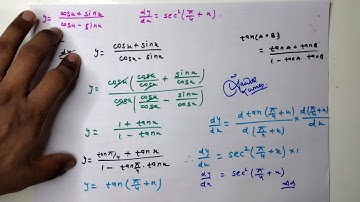 y = (cosx + sinx) / (cosx - sinx)
dy/dx = sec²(π/4 + x).
y = (cosx + sinx) / (cosx - sinx)
tan(A+B)
= (tanA + tanB) / (1 - tanA tanB)
y = cosx(cosx/cosx + sinx/cosx) / cosx(cosx/cosx - sinx/cosx)
y = (1 + tanx) / (1 - tanx)
y = (tanπ/4 + tanx) / (1 - tanπ/4 · tanx)
y = tan(π/4 + x)
dy/dx = d tan(π/4 + x) / d(π/4 + x) × d(π/4 + x) / dx
∴ dy/dx = sec²(π/4 + x) × 1
dy/dx = sec²(π/4 + x)